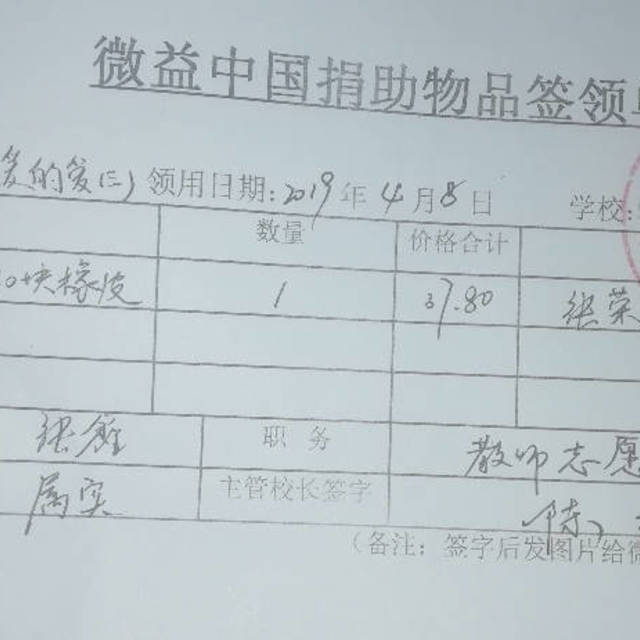 微益中国捐助物品签领
爱的爱(三) 领用日期:2019年4月8日 学校:
数量 价格合计
0块橡皮 1 37.80 张荣
张 职务 教师志愿
属实 主管校长签字 陈
(备注:签字后发图片给微